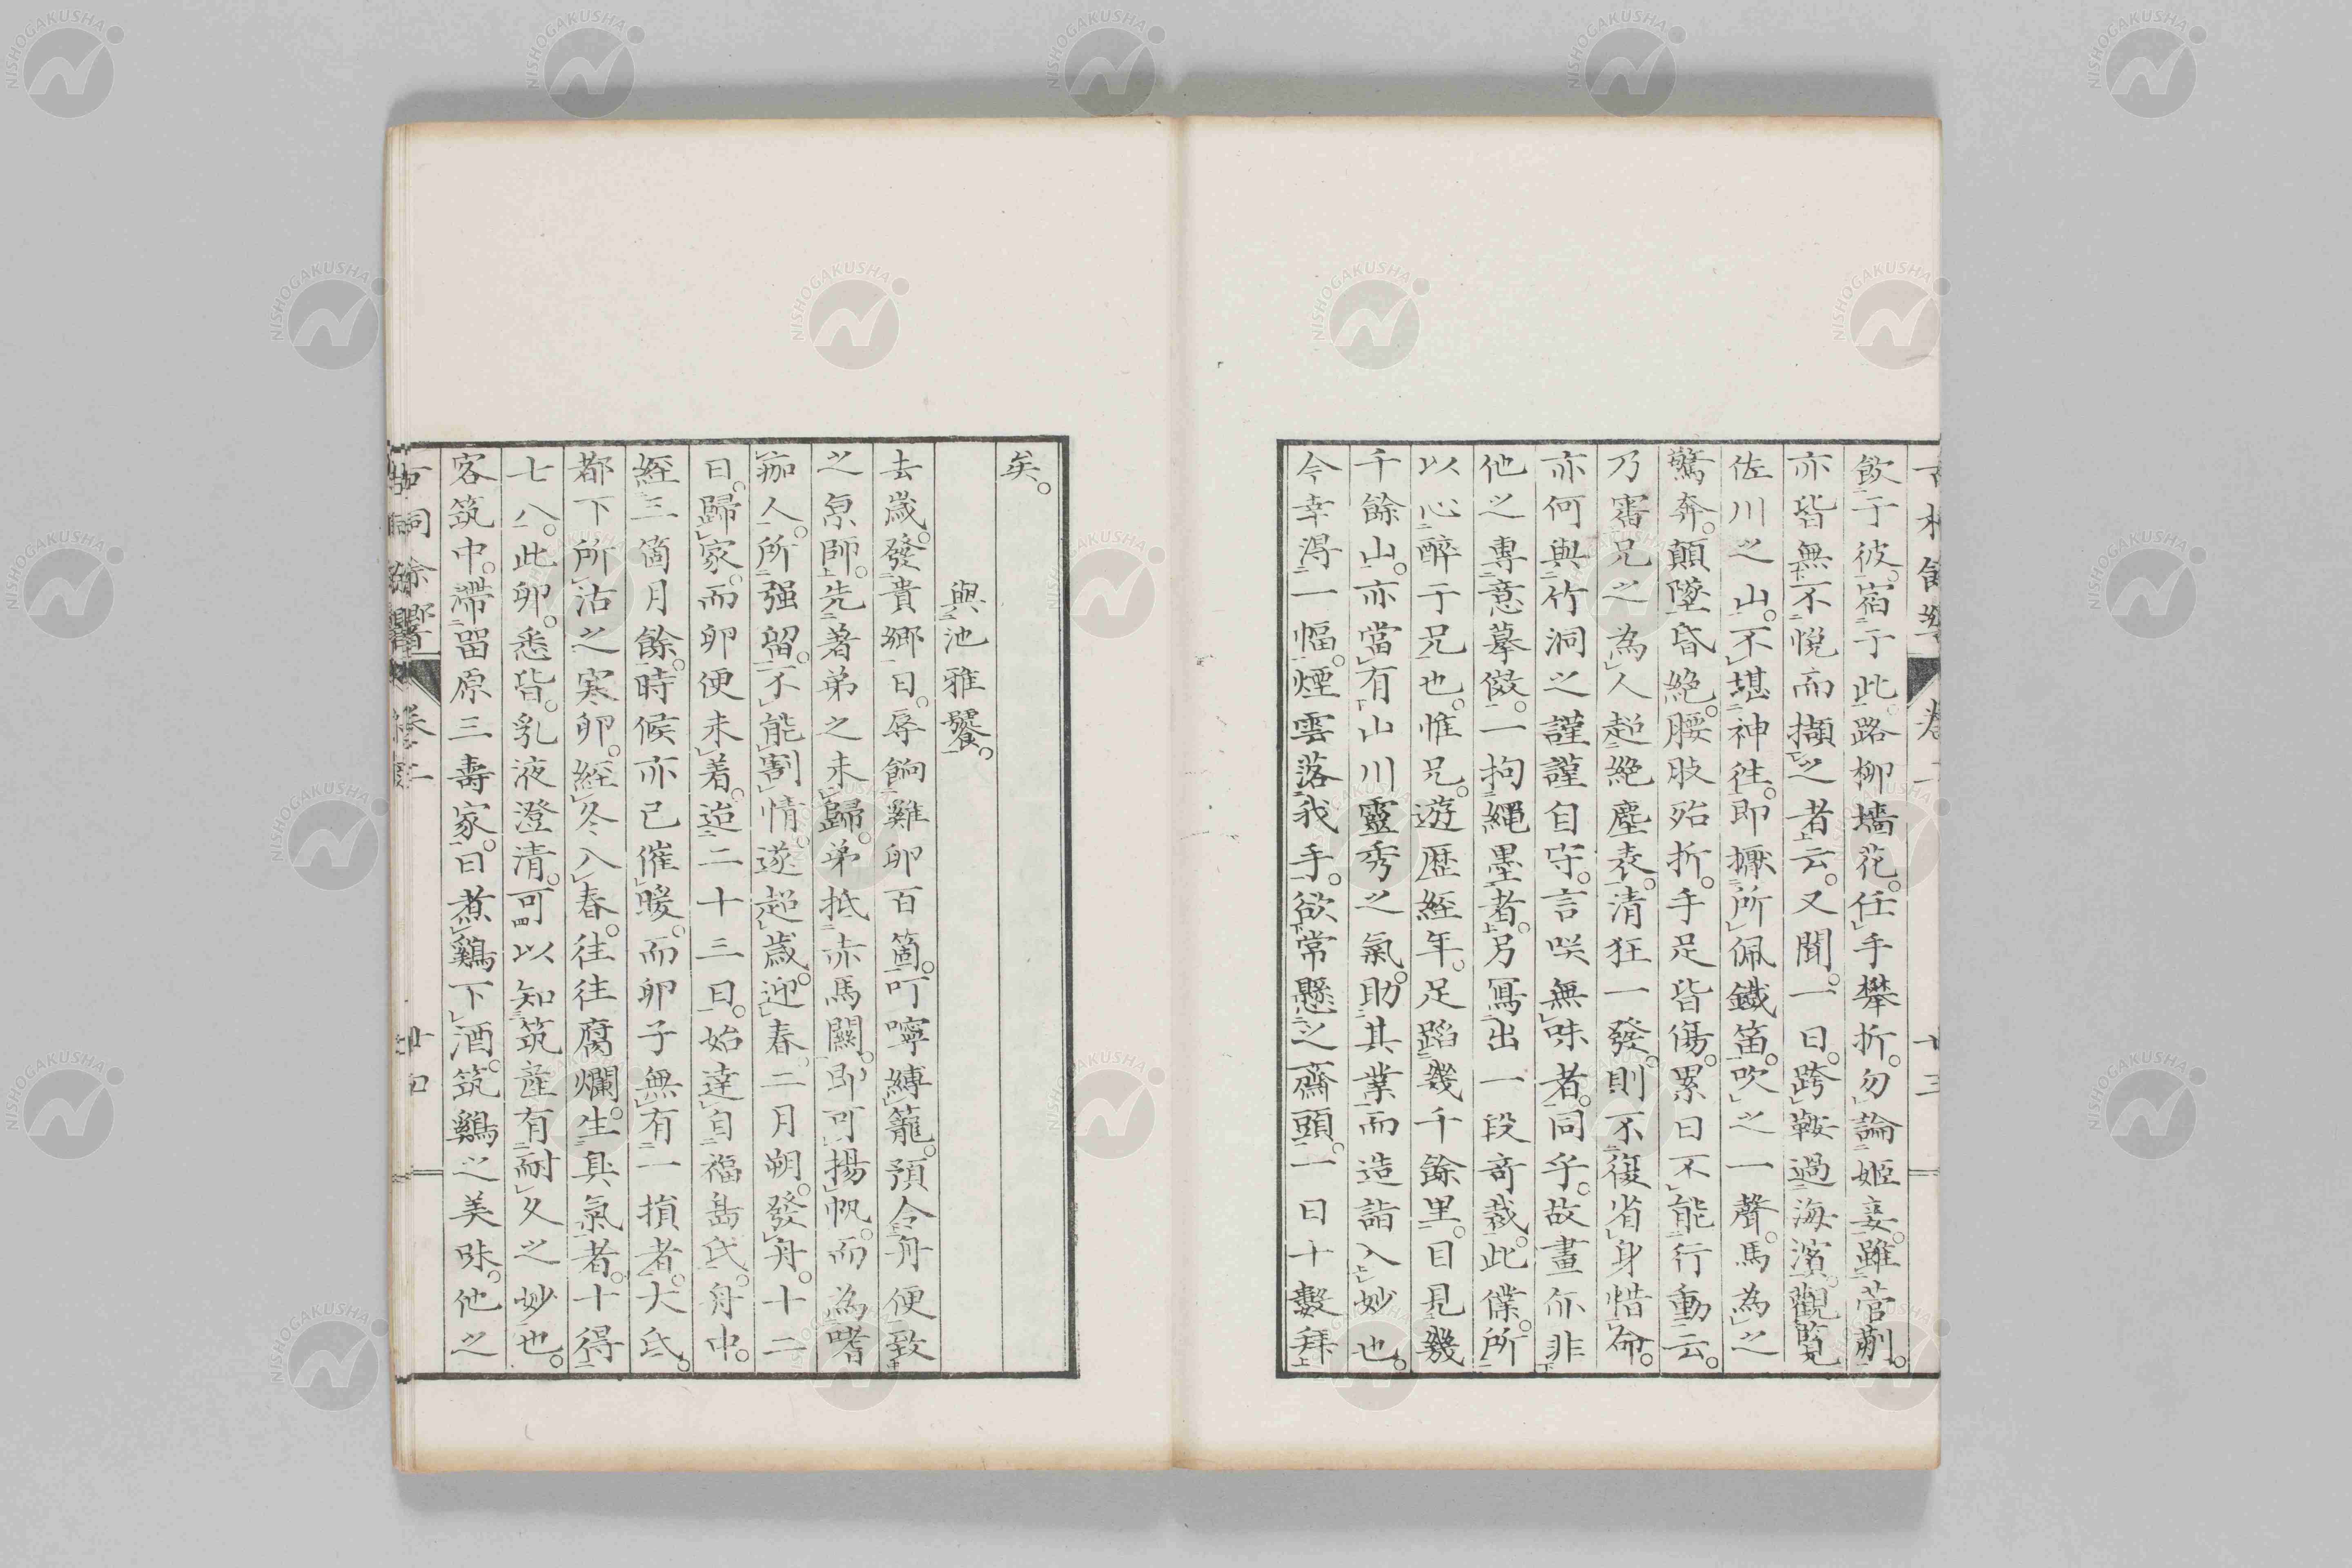 飲于彼。宿于此。路柳墻花。任手攀折。勿論姬妾。雖菅蒯。
亦皆無不悅而擷之者云。又聞。一日。跨鞍過海濱。觀覧
佐川之山。不堪神徃。即擫所佩鐵笛。吹之一聲。馬為之
驚奔。顛墜昏絶。腰肢殆折。手足皆傷。累日不能行動云。
乃審兄之為人超絶塵表。清狂一發。則不復省身惜命。
亦何與竹洞之謹謹自守。言咲無味者。同乎。故畫亦非
他之專意摹倣。一拘繩墨者。另寫出一段奇裁。此僕所
以心醉于兄也。惟兄。遊歴經年。足蹈幾千餘里。目見幾
千餘山。亦當有山川靈秀之氣。助其業而造詣入妙也。
今幸得一幅。煙雲落我手。欲常懸之齋頭。一日十數拜
矣。
與池雅饕。
去歳。發貴郷日。辱餉雞卵百箇。叮嚀縛籠。預令舟便致
之京師。先著弟之未歸。弟抵赤馬關。即可揚帆。而為嗜
痂人。所强留。不能割情。遂超歳。迎春。二月朔。發舟。十二
日。歸家。而卵便未着。迨二十三日。始達自福島氏。舟中。
經三箇月餘。時候亦已催暖。而卵子無有一損者。大氐。
都下所沽之寒卵。經冬入春。徃徃腐爛。生臭氣者。十得
七八。此卵。悉皆。乳液澄清。可以知筑産有耐久之妙也。
客筑中。滯留原三壽家。日煮鷄下酒。筑鷄之美味。他之
卷二
NISHOGAKUSHA